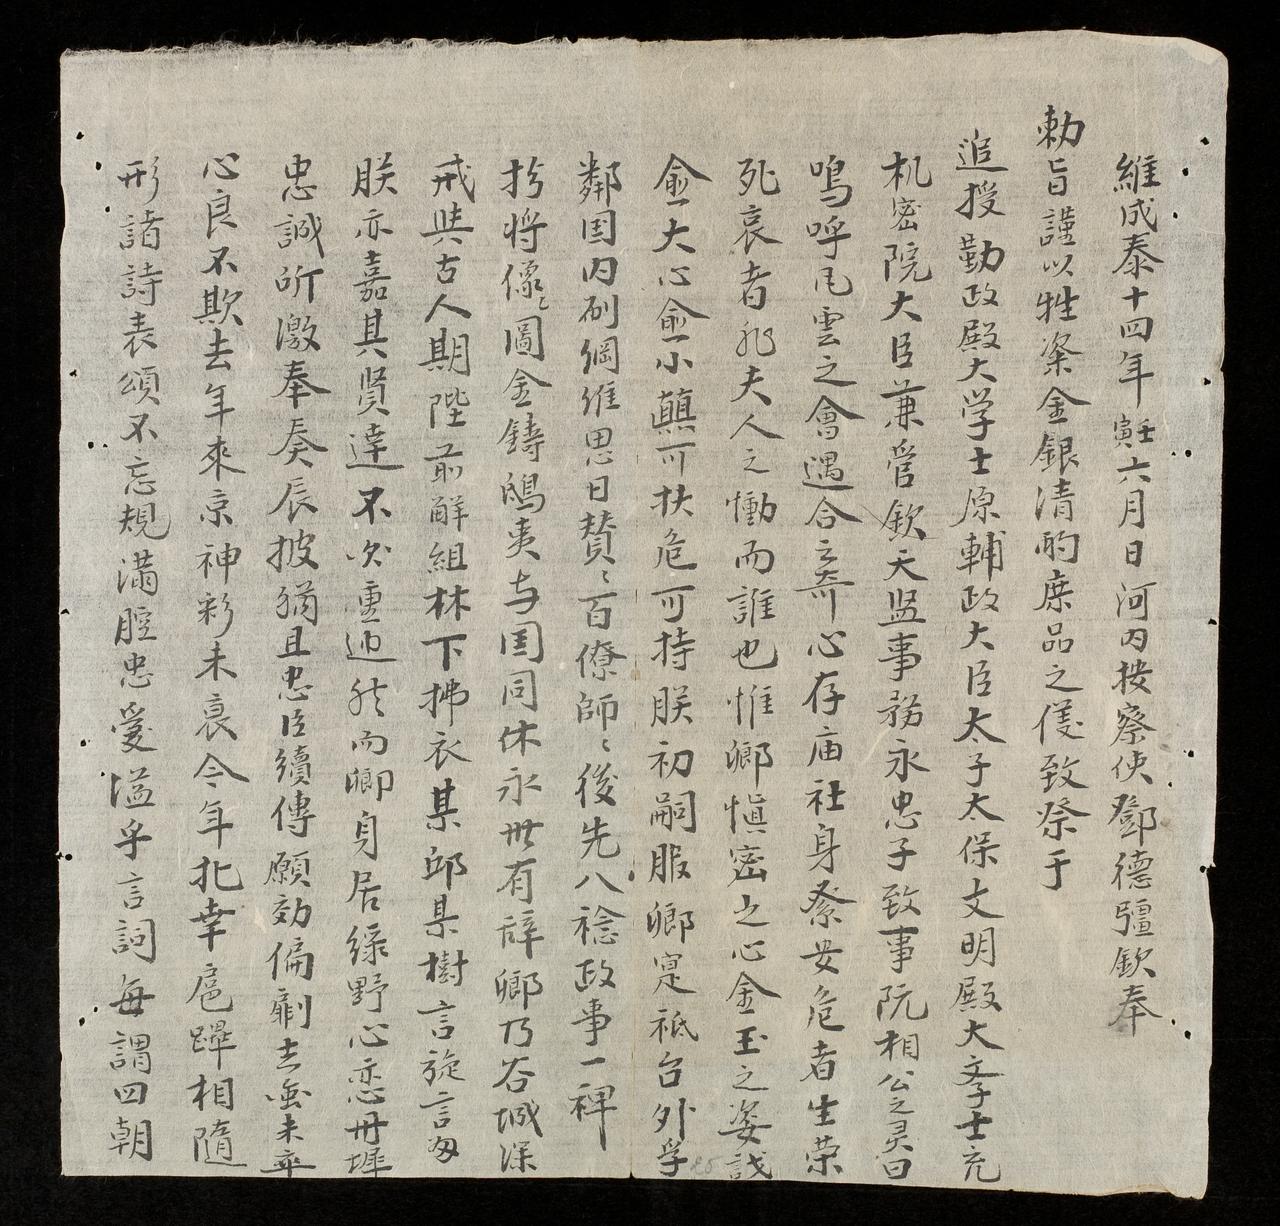 維成泰十四年壬寅六月日河内按察使鄧德彊欽奉
勅旨謹以牲粢金銀清酌庶品之儀致祭于
追授勤政殿大学士原輔政大臣太子太保文明殿大斈士充
机密院大臣兼管欽天监事務永忠子致事阮相公之灵曰
嗚呼凨雲之會遇合之奇心存庙社身系安危者生荣
死哀者非夫人之慟而誰也惟卿慎密之心金玉之姿
愈大心愈小顛可扶危可持朕初嗣服卿寔祗台外孚
鄰国内刷綱維思日賛〻百僚師〻後先八稔政事一裨
於将像〻圖金鑄鴟夷与囯同休永世有辞卿乃谷城深
戒與古人期陛前解组林下拂衣某邱某樹言旋言匆
朕亦嘉其賢達不次重迤然而卿身居緑野心恋丹墀
忠誠所激奉奏辰披猶且忠臣續傳願効偏剛去年未
心良不欺去年來京神彩未衰今年北幸扈蹕相隨
形諸詩表頌不忘規滿腔忠愛溢乎言詞每謂四朝